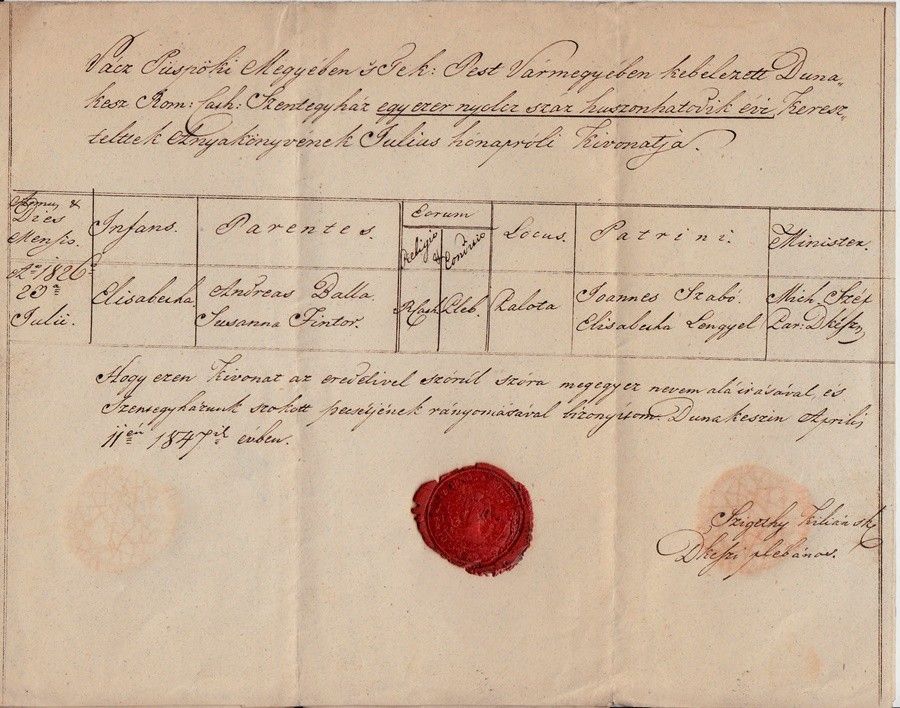 Vácz Püspöki Megyében 's Tek: Pest Vármegyében kebelezett Duna„
kesz Rom: Cath: Szentegyház egy ezer nyolcz száz huszonhatodik évi Keresz„
teltek Anyakönyvének Julius hónapróli Kivonatja.
Annus & Dies Mensis. Infans. Parentes. Eorum Religio & Conditio Locus. Patrini. Minister.
Ao 1826o 23a Julii. Elisabetha Andreas Dalla. Susanna Fintor. RCath. Pleb. Palota Joannes Szabó. Elisabetha Lengyel Mich. Szép Par: DKeszi
Hogy ezen Kivonat az eredetivel szórúl szóra megegyez nevem aláirásával, és
Szentegyházunk szokott petsétjének rányomásával bizonyitom. Dunakeszin Aprilis
11én 1847ik évben.
Szigethy Kilián sk
DKeszi plebános.